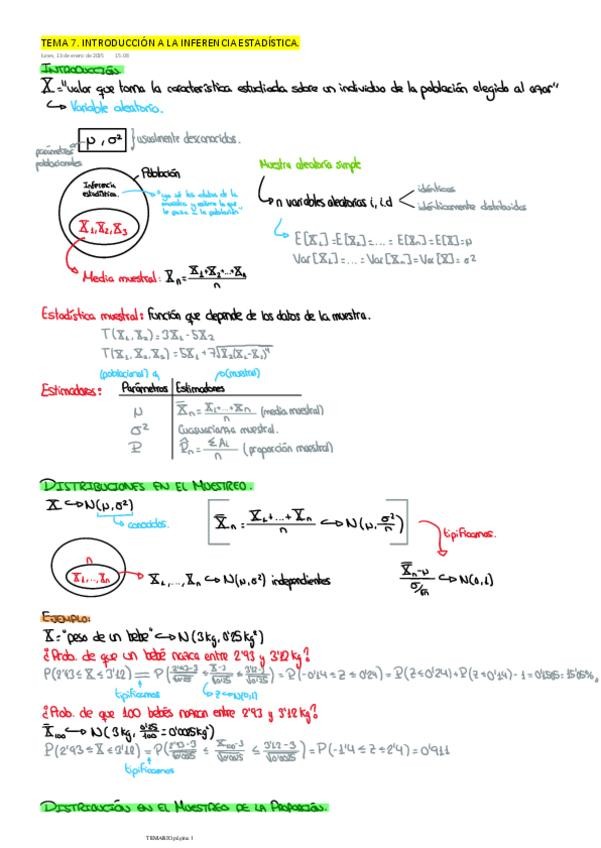 TEMA 7. INTRODUCCIÓN A LA INFERENCIA ESTADÍSTICA.
lunes, 13 de enero de 2025 15:08
INTRODUCCIÓN
X = "valor que toma la característica estudiada sobre un individuo de la población elegido al azar"
↪ Variable aleatoria.
μ, σ² } usualmente desconocidos.
parámetros poblacionales
Población
Muestra aleatoria simple
Inferencia estadística.
X₁, X₂, X₃
↪ n variables aleatorias i, i.d
idénticamente distribuidas
E[X₁] = E[X₂] = .... = E[Xₙ] = E[X] = μ
Var[X₁] = .... = Var[Xₙ] = Var[X] = σ²
Media muestral: X̄ₙ = (X₁+X₂+...+Xₙ)/n
Estadística muestral: función que depende de los datos de la muestra.
T(X₁, X₂) = 3X₁ - 5X₂
(poblacional) (muestral)
Estimadores: Parámetros | Estimadores
μ X̄ₙ = (X₁+...+Xₙ)/n (media muestral)
σ² Cuasivarianza muestral.
P P̂ₙ = ΣAᵢ/n (proporción muestral)
DISTRIBUCIONES EN EL MUESTREO.
X ↪ N(μ, σ²)
↪ conocidos.
[X̄ₙ = (X₁+...+Xₙ)/n ↪ N(μ, σ²/n)]
tipificamos.
n
X₁,...,Xₙ
X₁,...,Xₙ ↪ N(μ, σ²) independientes
(X̄ₙ-μ)/(σ/√n) ↪ N(0,1)
EJEMPLO:
X = "peso de un bebe" ↪ N(3kg, 0'25kg²)
¿Prob. de que un bebé nazca entre 2'93 y 3'12kg?
P(2'93 ≤ X ≤ 3'12) = P((2'93-3)/√0'25 ≤ (X-3)/√0'25 ≤ (3'12-3)/√0'25) = P(-0'14 ≤ Z ≤ 0'24) = P(Z ≤ 0'24) + P(Z ≤ 0'14) - 1 =
tipificamos
↪ Z ↪ N(0,1)
¿Prob. de que 100 bebés nazcan entre 2'93 y 3'12kg?
X̄₁₀₀ ↪ N(3kg, 0'25/100 = 0'0025kg²)
P(2'93 ≤ X̄ ≤ 3'12) = P((2'93-3)/√0'0025 ≤ (X̄₁₀₀-3)/√0'0025 ≤ (3'12-3)/√0'0025) = P(-1'4 ≤ Z ≤ 2'4) = 0'911
tipificamos
DISTRIBUCIÓN EN EL MUESTREO DE LA PROPORCIÓN.
TEMARIO página 1